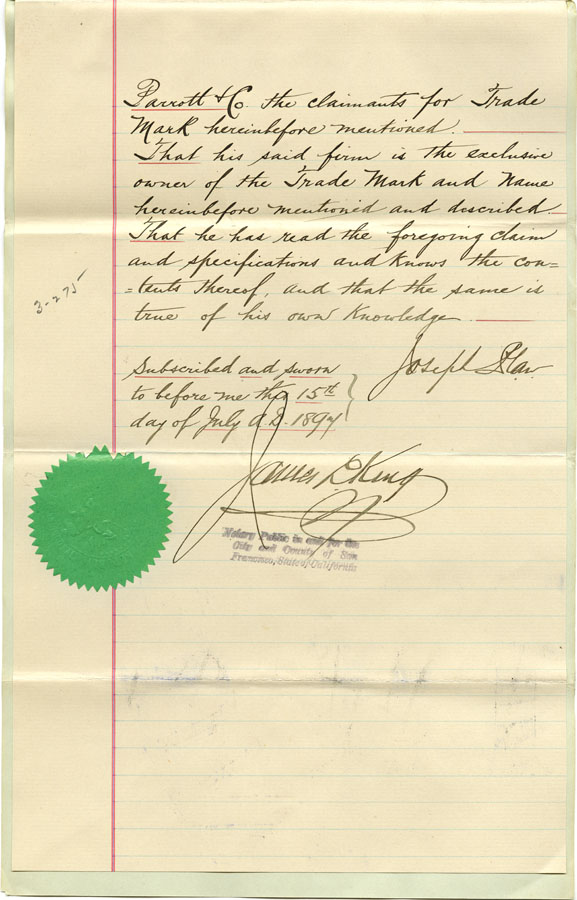 Parrott & Co. the claimants for Trade
Mark hereinbefore mentioned.
That his said firm is the exclusive
owner of the Trade Mark and Name
hereinbefore mentioned and described
That he has read the foregoing claim
and specifications and knows the con=
=tents thereof, and that the same is
true of his own Knowledge
3-275
Joseph
Subscribed and sworn
to before me this 15th
day of July A.D. 1897
James L King
Notary Public in and for the
City and County of San
Francisco, State of California